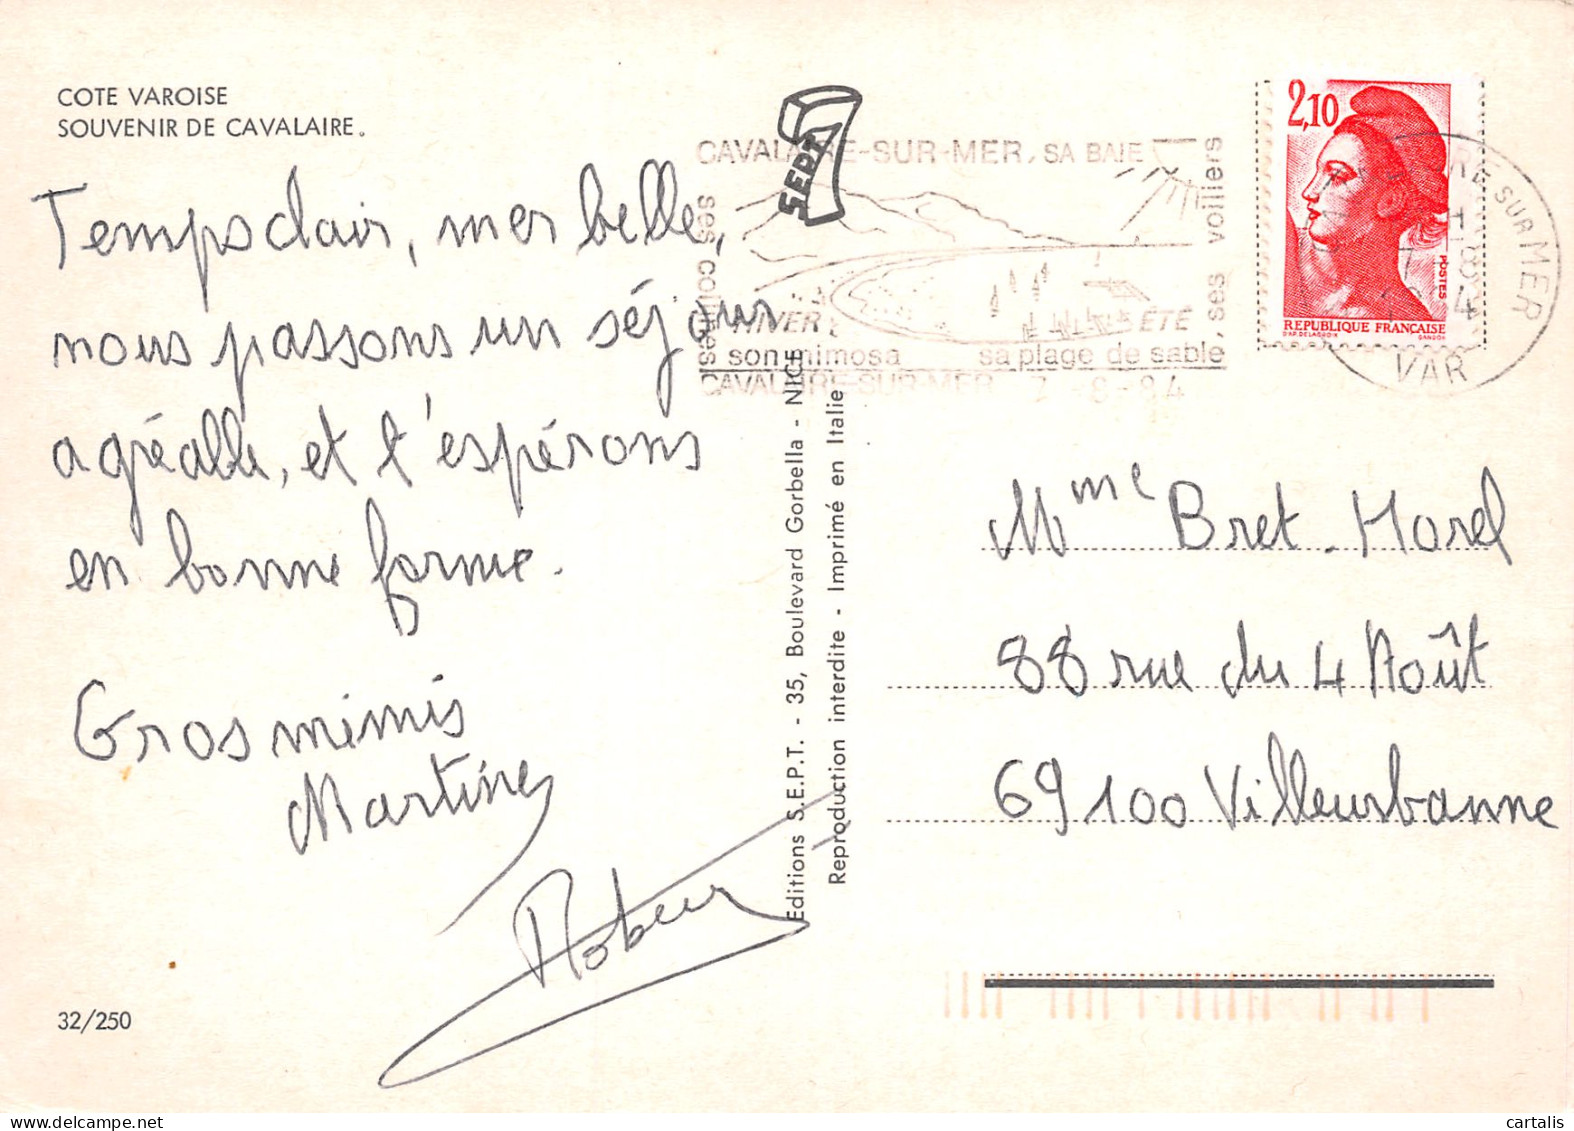 COTE VAROISE
SOUVENIR DE CAVALAIRE.
Temps clair, mer belle,
nous passons un séjour
agréable, et t'espérons
en bonne forme.
Gros mimis
Martine
Robert
32/250
SEPT
Editions S.E.P.T. - 35, Boulevard Gorbella - NICE
Reproduction interdite - Imprimé en Italie
CAVALAIRE-SUR-MER, SA BAIE
ses collines
HIVER
son mimosa
ÉTÉ
sa plage de sable,
ses voiliers
CAVALAIRE-SUR-MER 2-8-84
2,10
POSTES
REPUBLIQUE FRANÇAISE
SUR MER
VAR
Mme Bret-Morel
88 rue du 4 Août
69100 Villeurbanne
cartalis